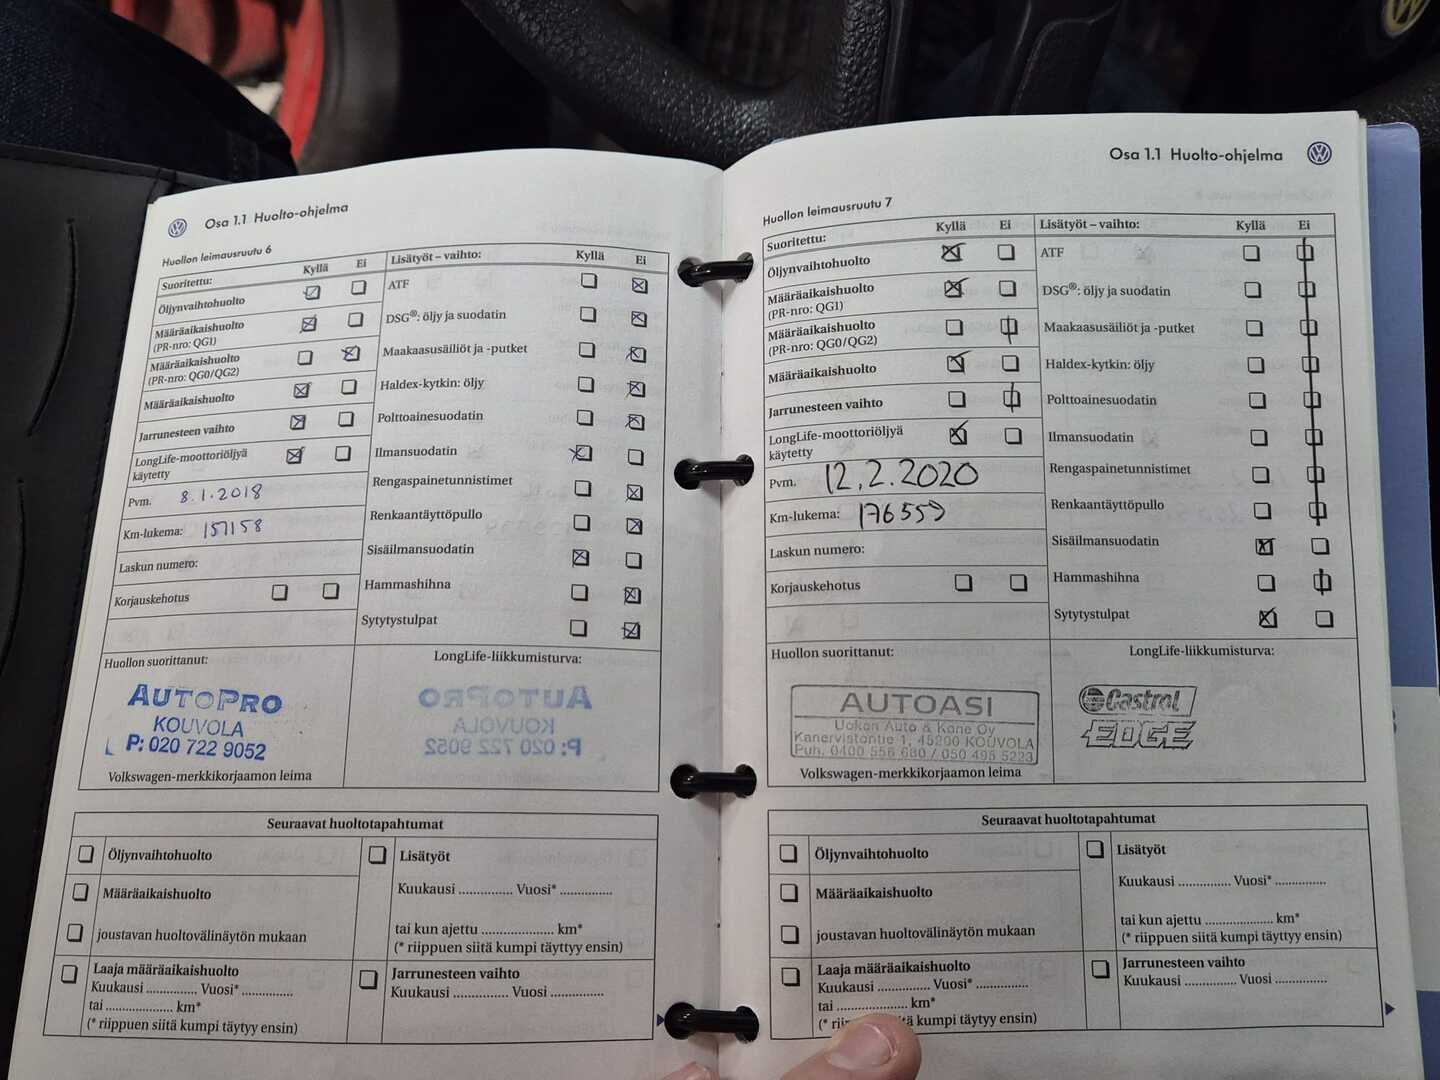 Osa 1.1 Huolto-ohjelma
Huollon leimausruutu 6
Suoritettu: Kyllä Ei
Öljynvaihtohuolto
Määräaikaishuolto
(PR-nro: QG1)
Määräaikaishuolto
(PR-nro: QG0/QG2)
Määräaikaishuolto
Jarrunesteen vaihto
LongLife-moottoriöljyä
käytetty
Pvm. 8.1.2018
Km-lukema: 157158
Laskun numero:
Korjauskehotus
Lisätyöt – vaihto: Kyllä Ei
ATF
DSG®: öljy ja suodatin
Maakaasusäiliöt ja -putket
Haldex-kytkin: öljy
Polttoainesuodatin
Ilmansuodatin
Rengaspainetunnistimet
Renkaantäyttöpullo
Sisäilmansuodatin
Hammashihna
Sytytystulpat
Huollon suorittanut:
AUTOPRO
KOUVOLA
P: 020 722 9052
Volkswagen-merkkikorjaamon leima
LongLife-liikkumisturva:
AUTOPRO
KOUVOLA
P: 020 722 9052
Seuraavat huoltotapahtumat
Öljynvaihtohuolto
Määräaikaishuolto
joustavan huoltovälinäytön mukaan
Laaja määräaikaishuolto
Kuukausi .............. Vuosi* ..............
tai .................. km*
(* riippuen siitä kumpi täytyy ensin)
Lisätyöt
Kuukausi .............. Vuosi* ..............
tai kun ajettu ................... km*
(* riippuen siitä kumpi täyttyy ensin)
Jarrunesteen vaihto
Kuukausi .............. Vuosi ..............
Osa 1.1 Huolto-ohjelma
Huollon leimausruutu 7
Suoritettu: Kyllä Ei
Öljynvaihtohuolto
Määräaikaishuolto
(PR-nro: QG1)
Määräaikaishuolto
(PR-nro: QG0/QG2)
Määräaikaishuolto
Jarrunesteen vaihto
LongLife-moottoriöljyä
käytetty
Pvm. 12.2.2020
Km-lukema: 176559
Laskun numero:
Korjauskehotus
Lisätyöt – vaihto: Kyllä Ei
ATF
DSG®: öljy ja suodatin
Maakaasusäiliöt ja -putket
Haldex-kytkin: öljy
Polttoainesuodatin
Ilmansuodatin
Rengaspainetunnistimet
Renkaantäyttöpullo
Sisäilmansuodatin
Hammashihna
Sytytystulpat
Huollon suorittanut:
AUTOASI
Uokon Auto & Kone Oy
Kanervistontie 1, 45200 KOUVOLA
Puh. 0400 556 680 / 050 495 5223
Volkswagen-merkkikorjaamon leima
LongLife-liikkumisturva:
Castrol
EDGE
Seuraavat huoltotapahtumat
Öljynvaihtohuolto
Määräaikaishuolto
joustavan huoltovälinäytön mukaan
Laaja määräaikaishuolto
Kuukausi .............. Vuosi* ..............
tai .................. km*
(* kumpi täytyy ensin)
Lisätyöt
Kuukausi .............. Vuosi* ..............
tai kun ajettu .................. km*
(* riippuen siitä kumpi täyttyy ensin)
Jarrunesteen vaihto
Kuukausi .............. Vuosi ..............